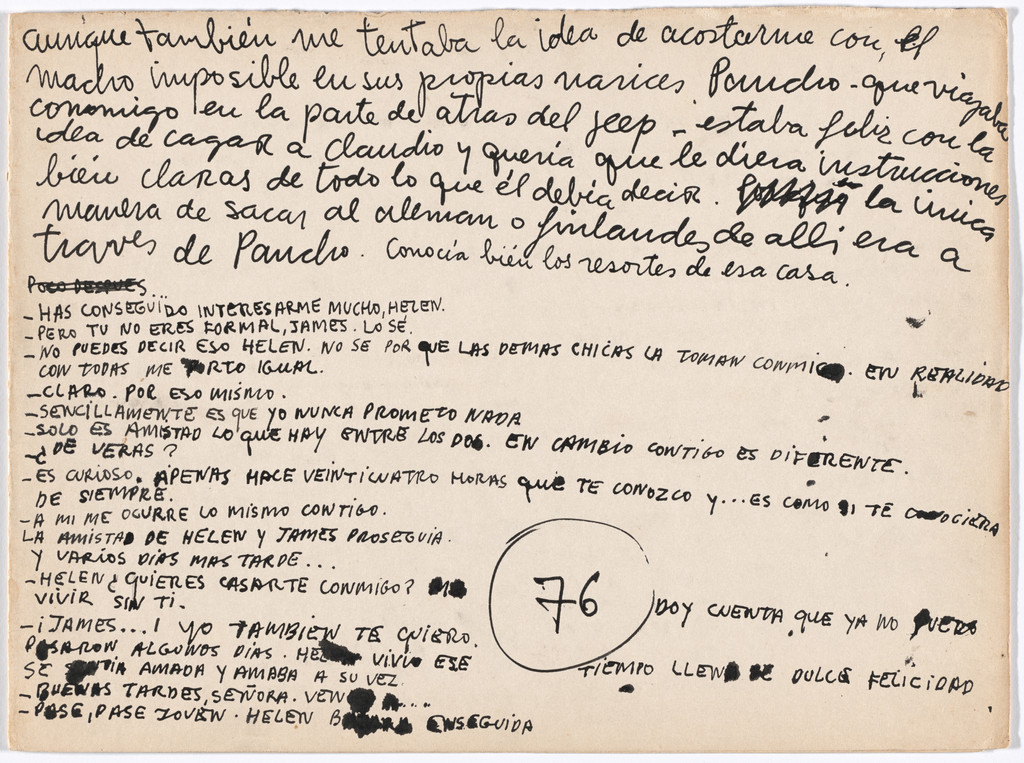 aunque también me tentaba la idea de acostarme con el
macho imposible en sus propias narices. Pancho - que viajaba
conomigo en la parte de atras del jeep - estaba feliz con la
idea de cagar a Claudio y quería que le diera instrucciones
bién claras de todo lo que él debía decir. la única
manera de sacar al aleman o finlandes de alli era a
través de Pancho. Conocía bién los resortes de esa casa.
POCO DESPUES
- HAS CONSEGUIDO INTERESARME MUCHO, HELEN.
- PERO TU NO ERES FORMAL, JAMES. LO SÉ.
- NO PUEDES DECIR ESO HELEN. NO SE POR QUE LAS DEMAS CHICAS LA TOMAN CONMIGO. EN REALIDAD
CON TODAS ME PORTO IGUAL.
- CLARO. POR ESO MISMO.
- SENCILLAMENTE ES QUE YO NUNCA PROMETO NADA
- SOLO ES AMISTAD LO QUE HAY ENTRE LOS DOS. EN CAMBIO CONTIGO ES DIFERENTE.
- ¿DE VERAS?
- ES CURIOSO. APENAS HACE VEINTICUATRO HORAS QUE TE CONOZCO Y... ES COMO SI TE CONOCIERA
DE SIEMPRE.
- A MI ME OCURRE LO MISMO CONTIGO.
LA AMISTAD DE HELEN Y JAMES PROSEGUIA.
Y VARIOS DIAS MAS TARDE...
- HELEN ¿QUIERES CASARTE CONMIGO? DOY CUENTA QUE YA NO PUEDO
VIVIR SIN TI.
- ¡JAMES...! YO TAMBIEN TE QUIERO.
PASARON ALGUNOS DIAS. HELEN VIVIO ESE TIEMPO LLENO DE DULCE FELICIDAD
SE SENTIA AMADA Y AMABA A SU VEZ.
- BUENAS TARDES, SEÑORA. VENGO A...
- PASE, PASE JOVEN. HELEN BAJARA ENSEGUIDA
76